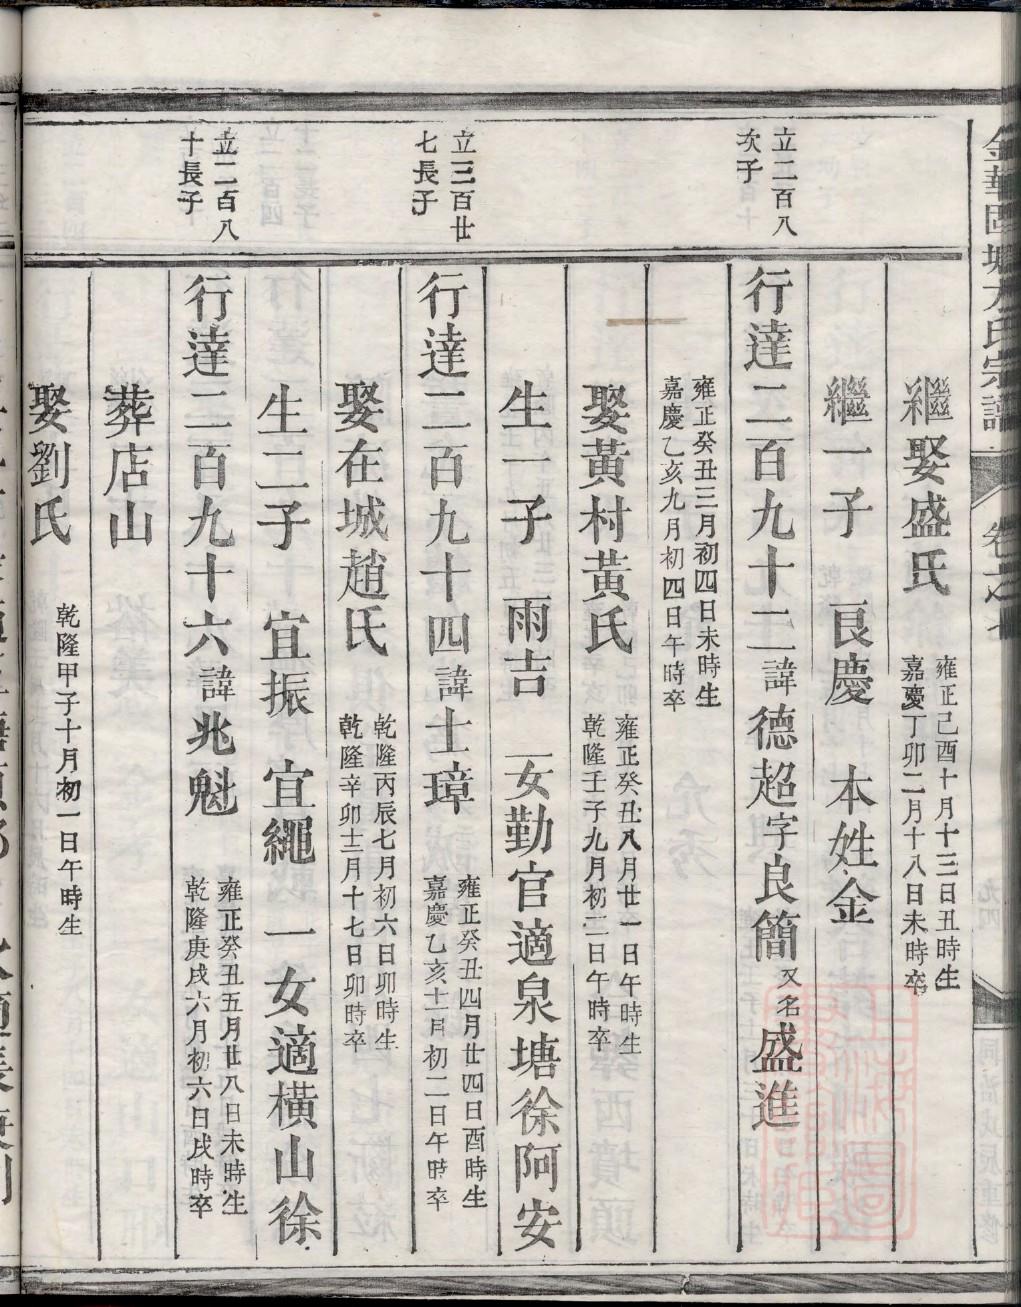 金華區塘方氏宗譜 卷之七
繼娶盛氏
雍正己酉十月十三日丑時生
嘉慶丁卯二月十八日未時卒
繼一子 良慶 本姓金
立二百八
次子
行達二百九十二諱德超字良簡又名盛進
雍正癸丑三月初四日未時生
嘉慶乙亥九月初四日午時卒
娶黃村黃氏
雍正癸丑八月廿一日午時生
乾隆壬子九月初二日午時卒
生一子 雨吉 一女勤官適泉塘徐阿安
立三百廿
七長子
行達二百九十四諱士璋
雍正癸丑四月廿四日酉時生
嘉慶乙亥十一月初二日午時卒
娶在城趙氏
乾隆丙辰七月初六日卯時生
乾隆辛卯十二月十七日卯時卒
生二子 宜振 宜繩 一女適橫山徐
立二百八
十長子
行達二百九十六諱兆魁
雍正癸丑五月廿八日未時生
乾隆庚戌六月初六日戌時卒
葬店山
娶劉氏
乾隆甲子十月初一日午時生